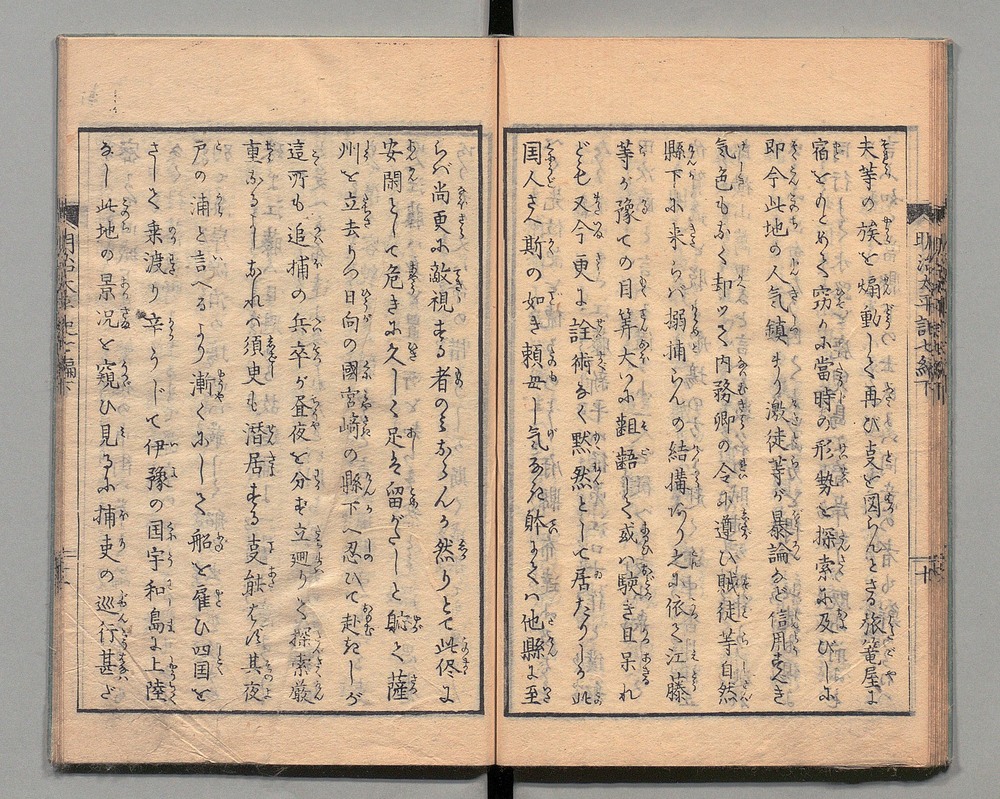 夫等の族を煽動して再び支を図らんとある旅篭屋に
宿をもとめて窃かに當時の形勢を探索に及びしに
即今此地の人気鎮まり激徒等が暴論など信用すべき
気色もなく却つて内務卿の令に遵ひ賊徒等自然
縣下に来らバ搦捕らんの結搆あり之に依て江藤
等が豫ての目算大いに齟齬して或ハ駭き且呆れ
ども又今更に詮術なく黙然として居たりしが此
国人さへ斯の如き頼母し気なき躰にてハ他縣に至
らバ尚更に敵視する者のみならんが然りとて此侭に
安閑として危きに久しく足を留がたしと躰て薩
州を立去りつ日向の國宮崎の縣下へ忍びて赴きしが
這所も追捕の兵卒が昼夜を分たず立廻りて探索厳
重なるよしなれバ須臾も潜居する支能はず其夜
戸の浦と言へるより漸くにして船を雇ひ四国を
さして乗渡り辛うじて伊豫の国宇和島に上陸
なし此地の景况を窺ひ見るに捕吏の巡行甚ど
明治太平記七編下
十